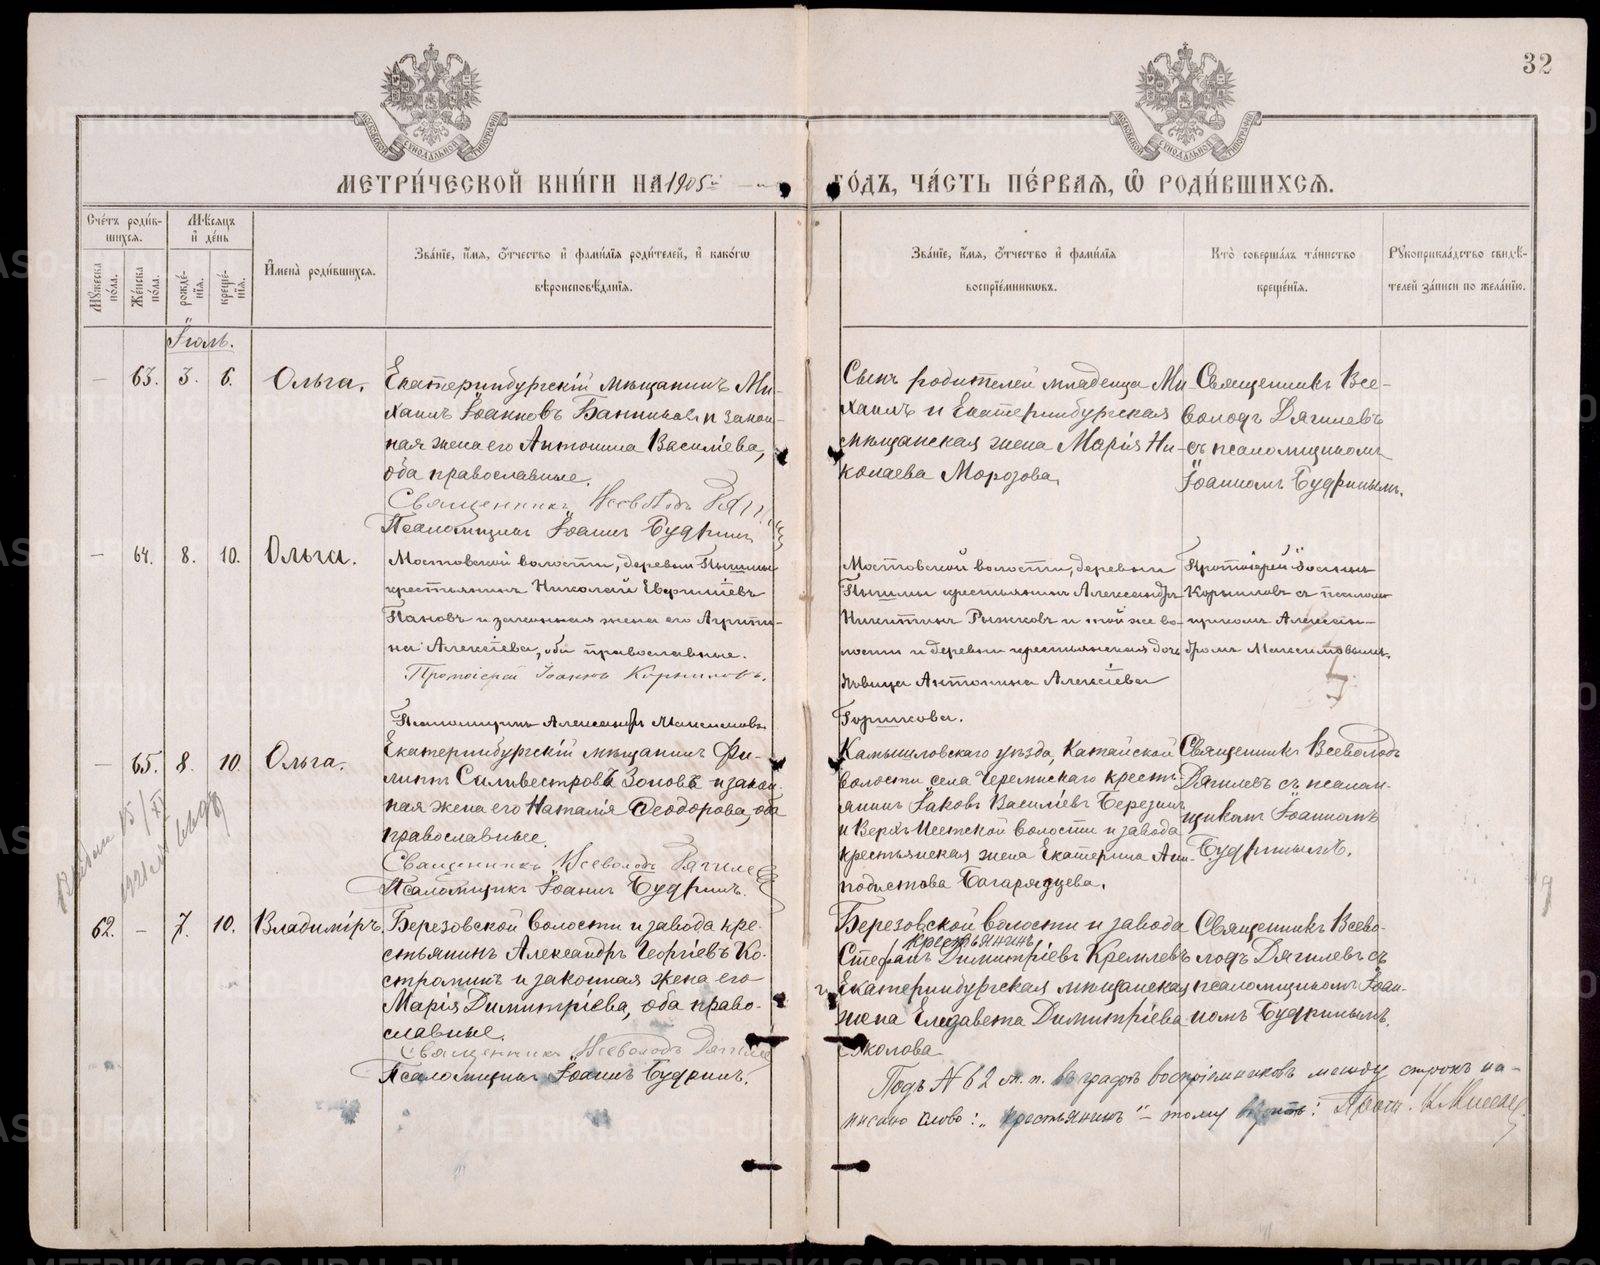 32
МОСКОВСКОЙ СѴНОДАЛЬНОЙ ТИПОГРАФІИ
МОСКОВСКОЙ СѴНОДАЛЬНОЙ ТИПОГРАФІИ
МЕТРИ́ЧЕСКОЙ КНИ́ГИ НА 1905й ГО́ДЪ, ЧА́СТЬ ПЕ́РВАѦ, Ѡ РОДИ́ВШИХСѦ.
Сче́тъ роди́вшихсѧ.
Мꙋжеска по́ла.
Же́нска по́ла.
Мѣ́сѧцъ и де́нь
рожде́нїѧ.
креще́нїѧ.
И҆мена̀ роди́вшихсѧ.
Зва́нїе, и҆́мѧ, ѻ҆́тчество и҆ фами́лїѧ роди́телей, и҆ како́гѡ
вѣроисповѣ́данїѧ.
Зва́нїе, и҆́мѧ, ѻ҆́тчество и҆ фами́лїѧ
воспрїе́мникѡвъ.
Кто̀ соверша́лъ та́инство
креще́нїѧ.
Рꙋкоприкла́дство свидѣ́-
телей за́писи по жела́нїю.
Іюль.
— 63. 3. 6. Ольга.
Екатеринбургскій мѣщанинъ Ми-
хаилъ Іоанновъ Банниковъ и закон-
ная жена его Антонина Василіева,
оба православные.
Священникъ Всеволодъ Дягилевъ
Псаломщикъ Іоаннъ Будринъ
Сынъ родителей младенца Ми-
хаилъ и Екатеринбургская
мѣщанская жена Марія Ни-
колаева Морозова.
Священникъ Все-
володъ Дягилевъ
съ псаломщикомъ
Іоанномъ Будринымъ.
— 64. 8. 10. Ольга.
Мостовской волости, деревни Пышмы
крестьянинъ Николай
Пановъ и законная жена его Агрипи-
на Алексіева, оба православные.
Протоіерей Іоаннъ Корниловъ.
Псаломщикъ Александръ Максимовъ
Мостовской волости, деревни
Пышмы крестьянинъ Александръ
Никитинъ Рыжковъ и той же во-
лости и деревни крестьянская дочь
дѣвица Антонина Алексіева
Горшкова.
Протоіерей Іоаннъ
Корниловъ съ псалом-
щикомъ Алексан-
дромъ Максимовымъ.
— 65. 8. 10. Ольга.
Екатеринбургскій мѣщанинъ Фи-
липпъ Сильвестровъ Зоновъ и закон-
ная жена его Наталія Ѳеодорова, оба
православные.
Священникъ Всеволодъ Дягилевъ
Псаломщикъ Іоаннъ Будринъ.
Камышловскаго уѣзда, Катайской
волости села Черемискаго кресть-
янинъ Іаковъ Василіевъ Березинъ
и Верхъ-Исетской волости и завода
крестьянская жена Екатерина Анп-
подистова Багарядцева.
Священникъ Всеволодъ
Дягилевъ съ псалом-
щикомъ Іоанномъ
Будринымъ.
62. — 7. 10. Владиміръ.
Березовской волости и завода кре-
стьянинъ Александръ Георгіевъ Ко-
строминъ и законная жена его
Марія Димитріева, оба право-
славные.
Священникъ Всеволодъ Дягилевъ
Псаломщикъ Іоаннъ Будринъ.
Березовской волости и завода
крестьянинъ
Стефанъ Димитріевъ Кремлевъ
и Екатеринбургская мѣщанская
жена Елизавета Димитріева
Священникъ Всево-
лодъ Дягилевъ съ
псаломщикомъ Іоан-
номъ Будринымъ.
Подъ № 62 м. п. въ графѣ воспріемниковъ между строкъ на-
писано слово: „крестьянинъ" – тому вѣрить: